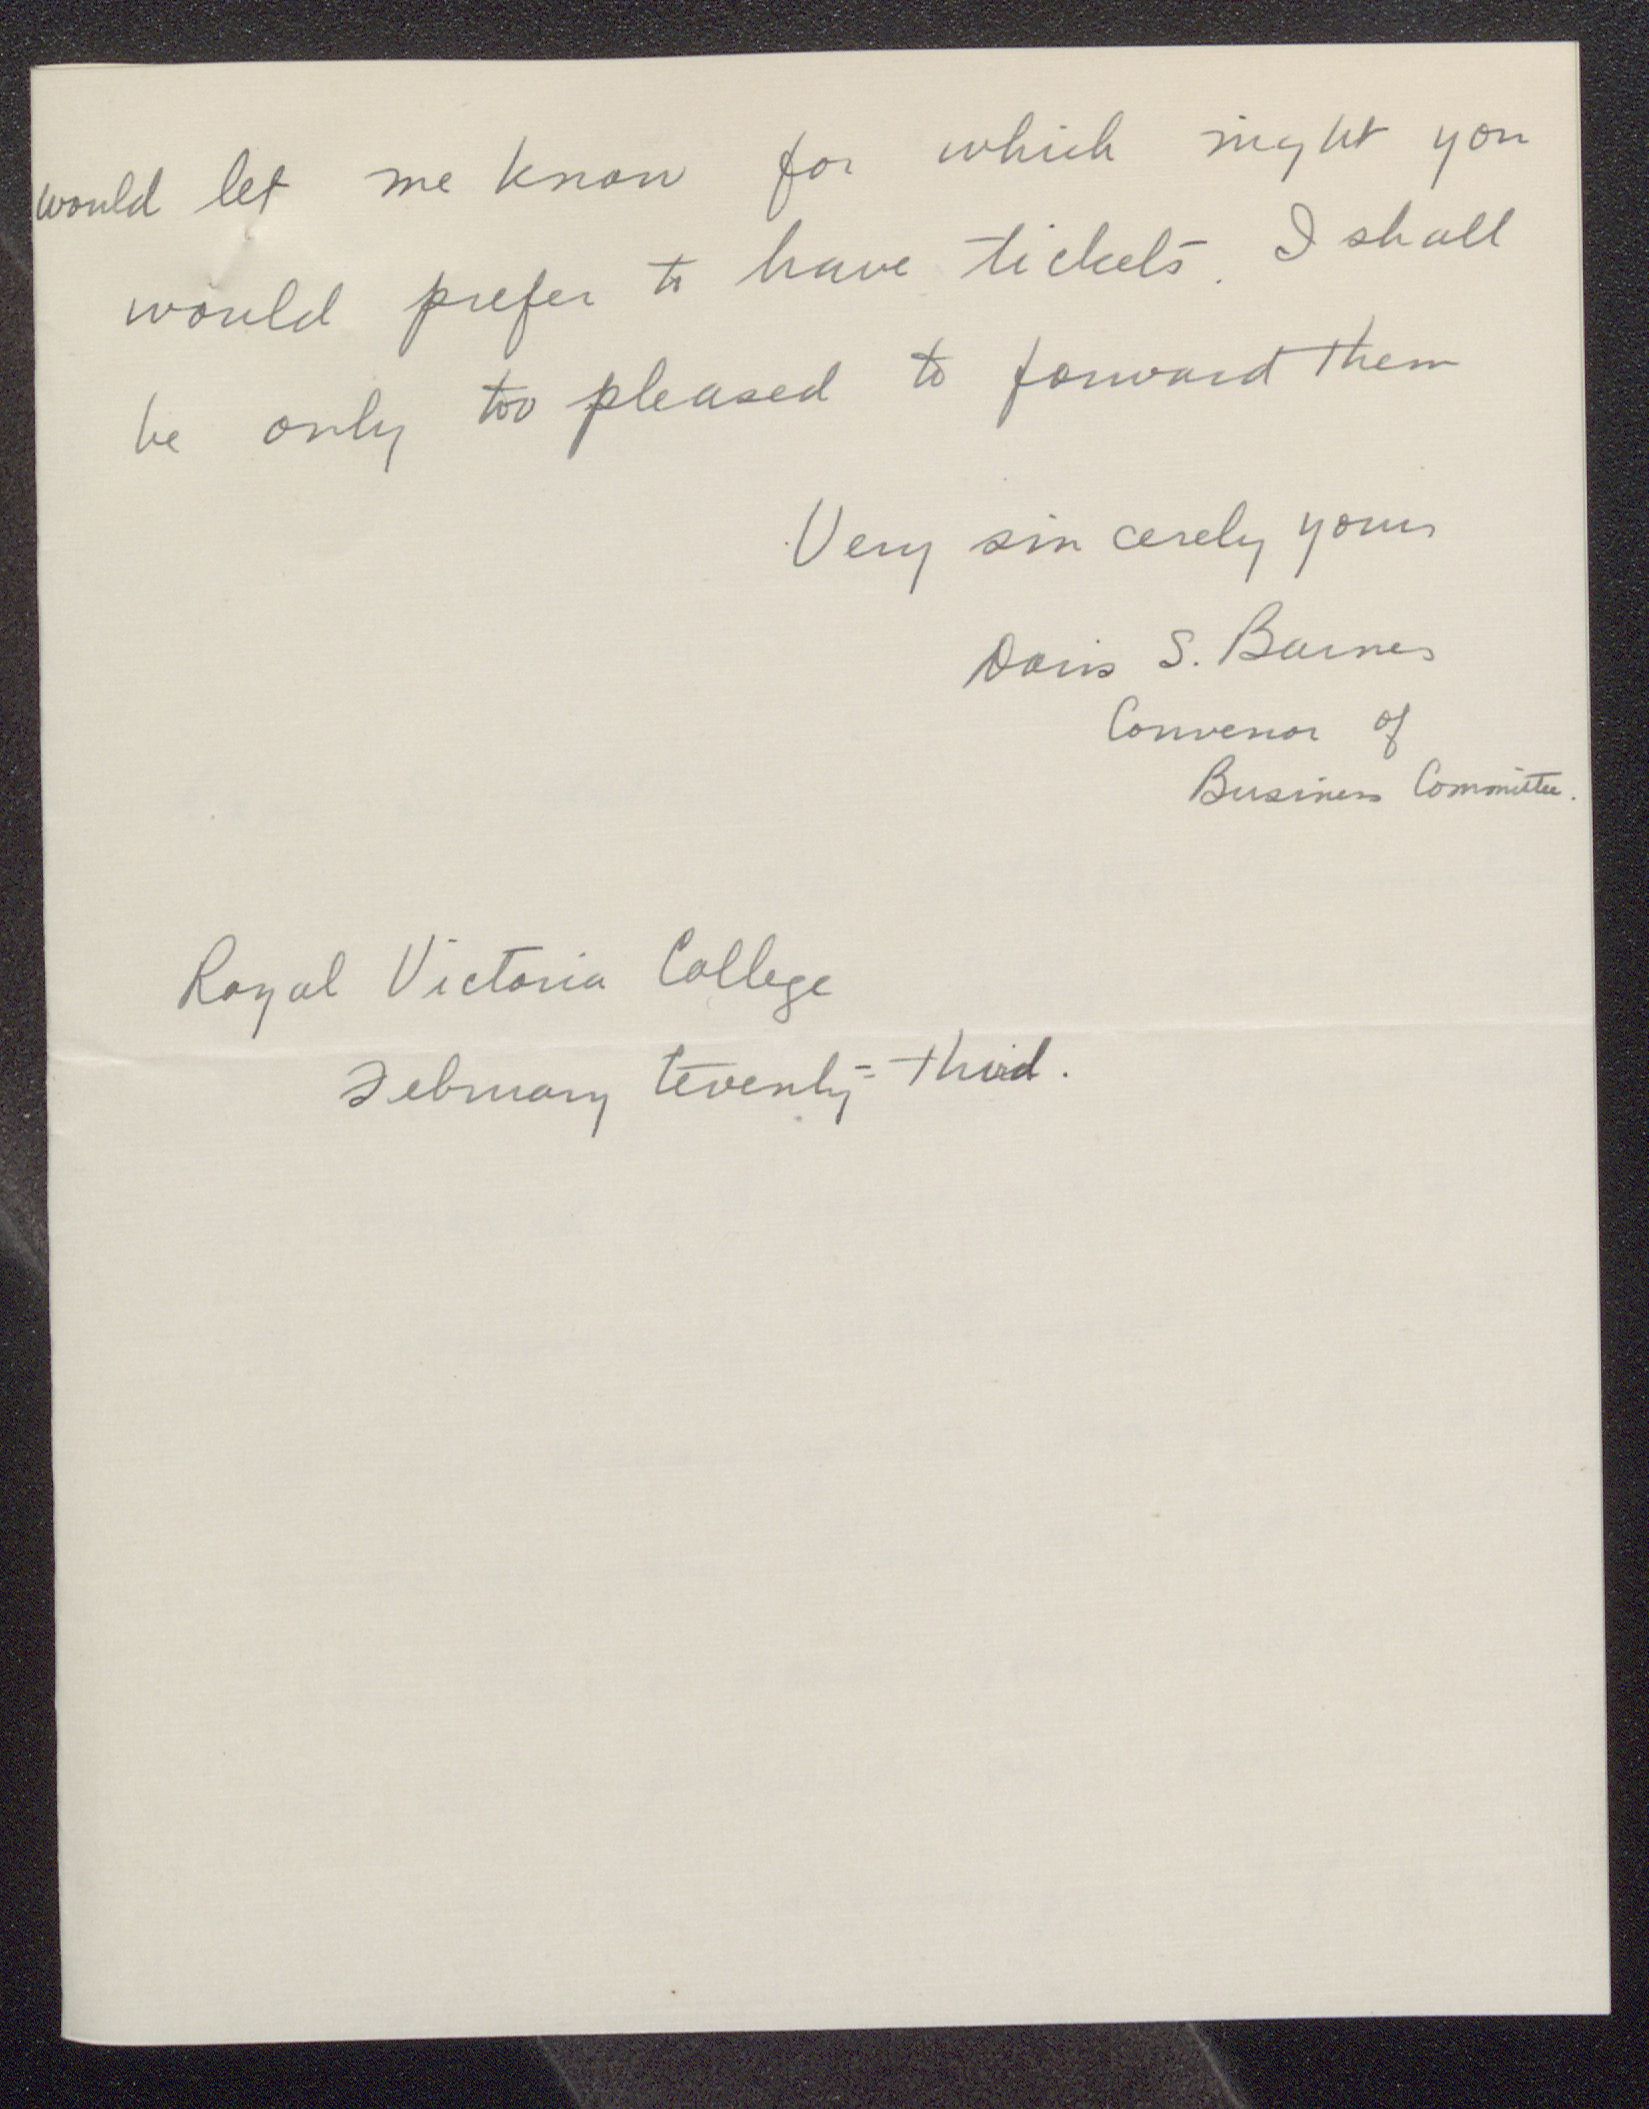 would let me know for which night you
would prefer to have tickets. I shall
be only too pleased to forward them
Very sincerely yours
Doris S. Barnes
Convenor of
Business Committee.
Royal Victoria College
February twenty-third.